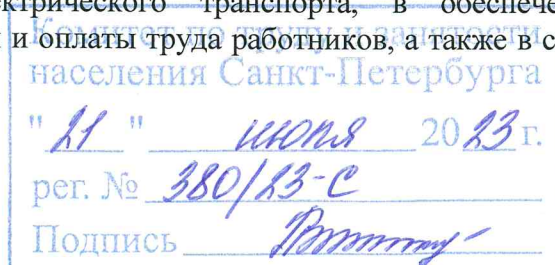 ектрического транспорта, в обеспече
и оплаты труда работников, а также в с
Комитет по труду и занятости
населения Санкт-Петербурга
"21" июля 2023 г.
рег. № 380/23-С
Подпись